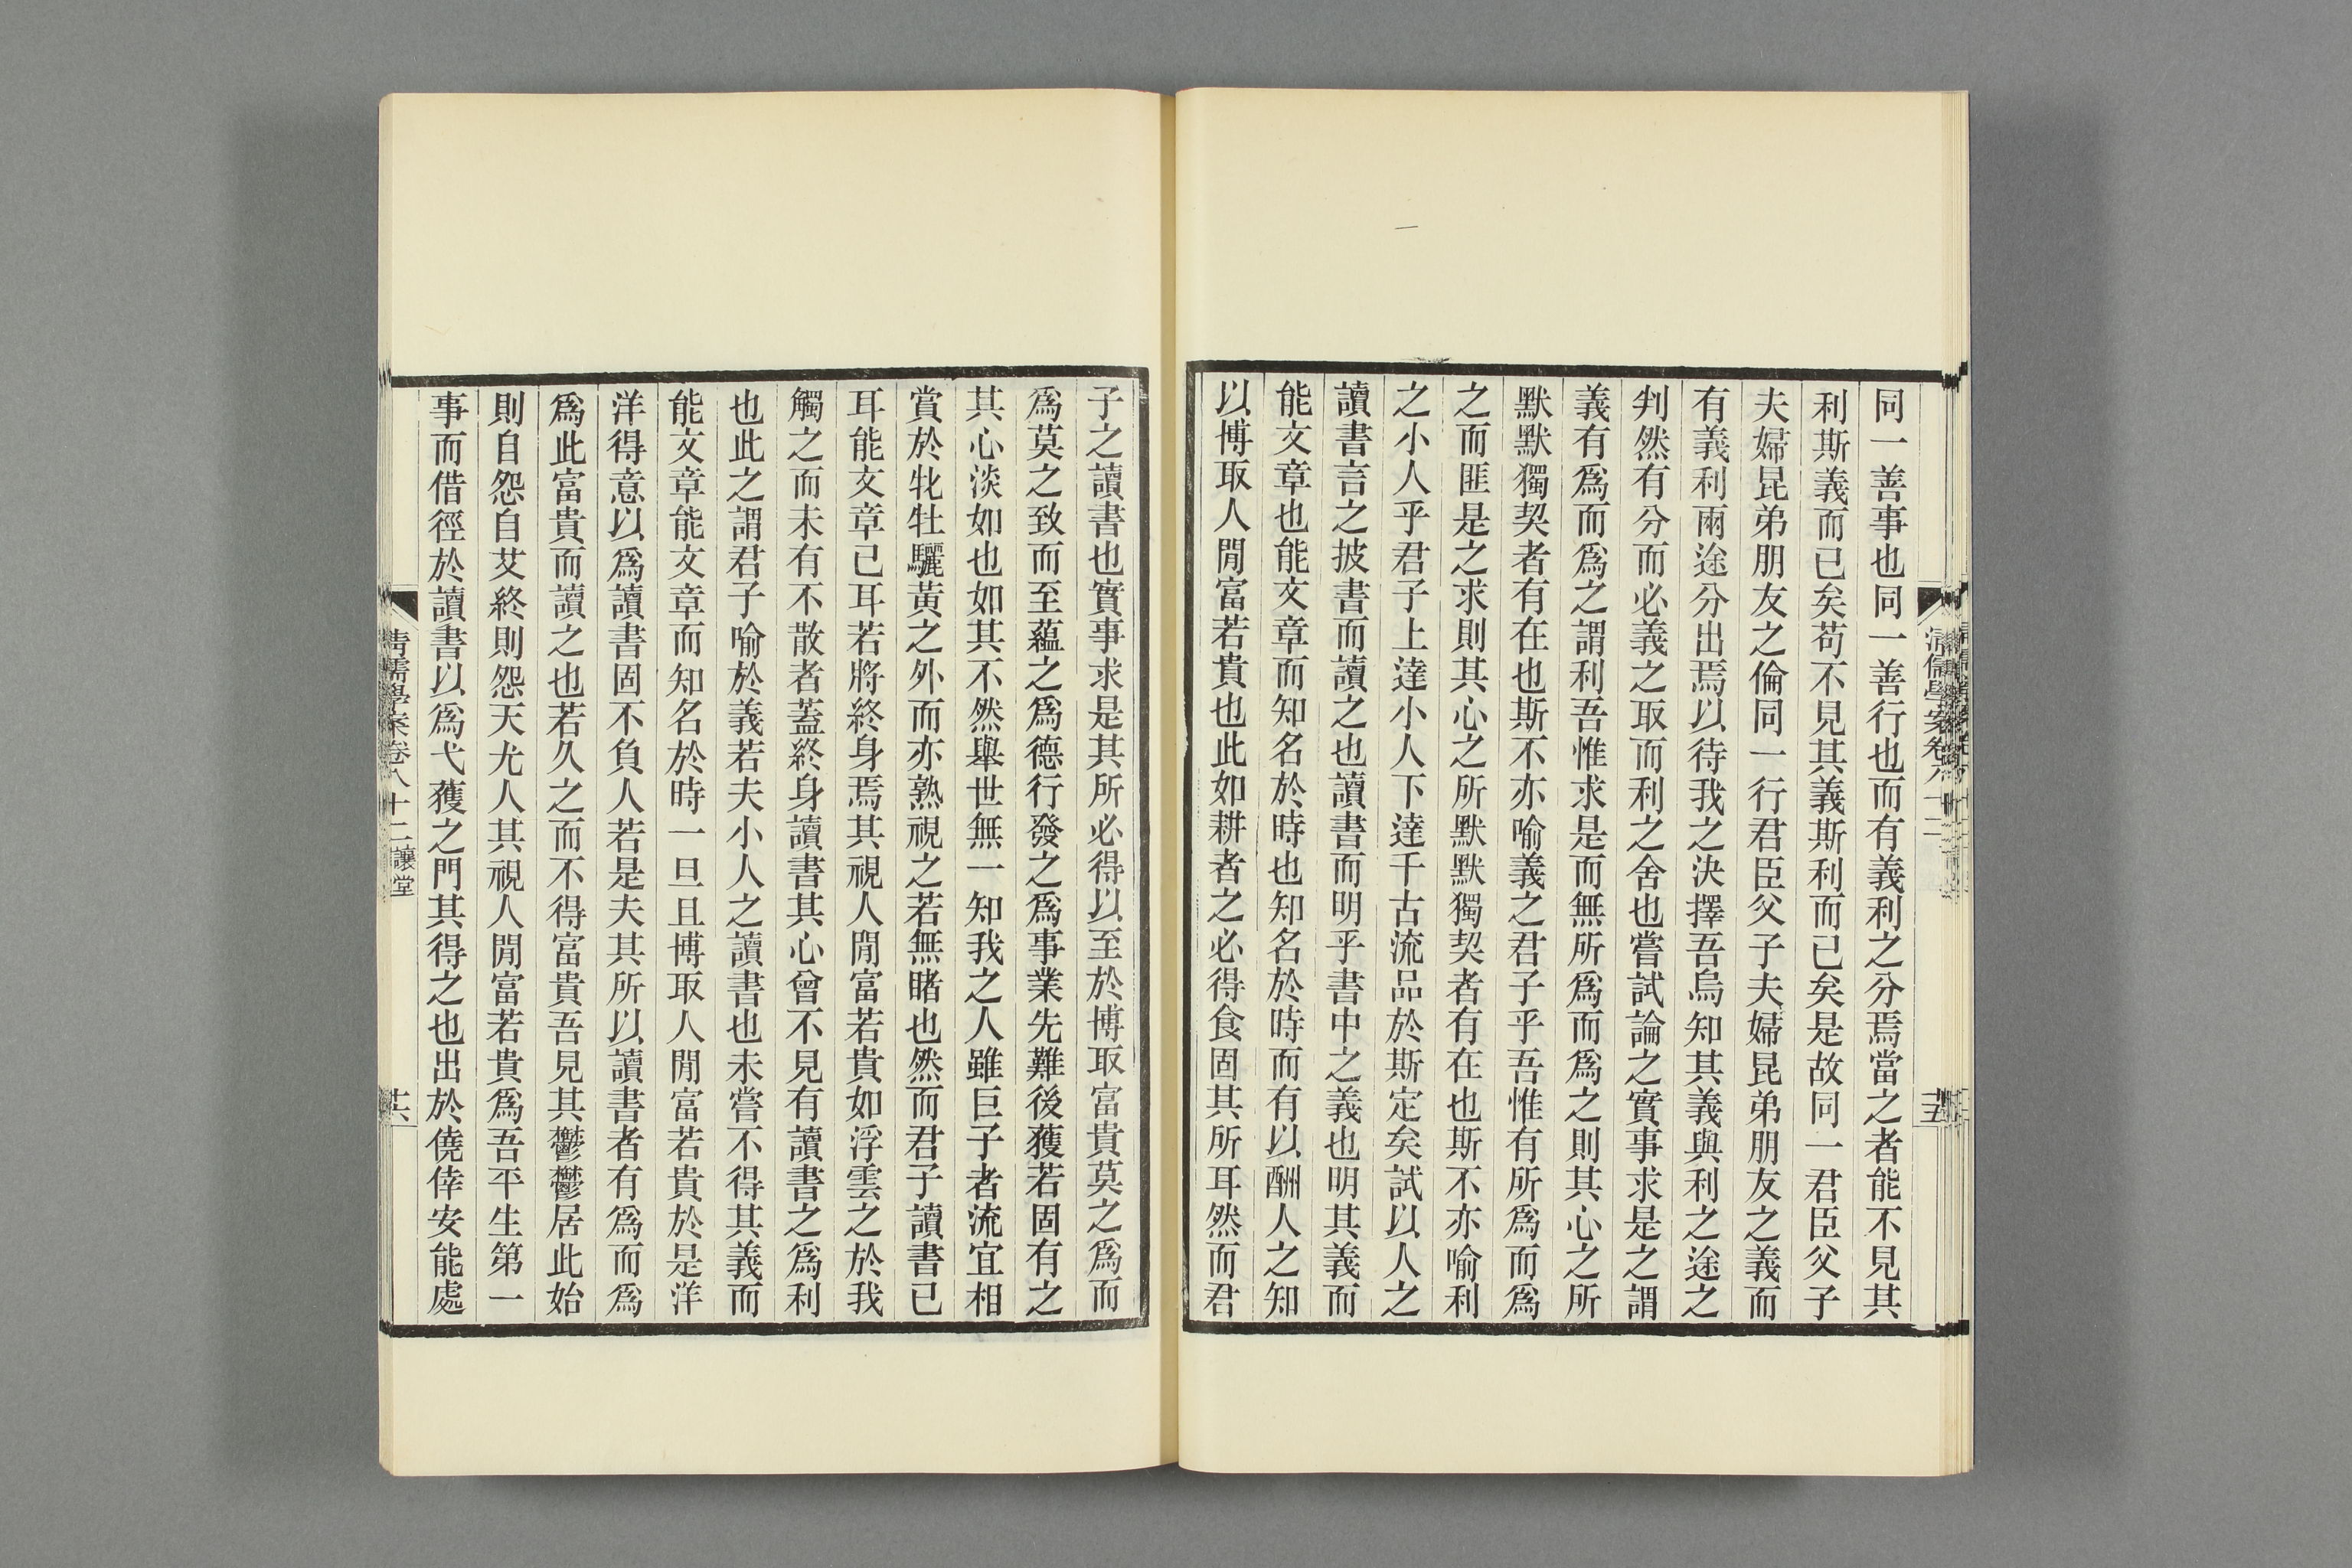 同一善事也同一善行也而有義利之分焉當之者能不見其
利斯義而已矣苟不見其義斯利而已矣是故同一君臣父子
夫婦昆弟朋友之倫同一行君臣父子夫婦昆弟朋友之義而
有義利兩途分出焉以待我之決擇吾烏知其義與利之途之
判然有分而必義之取而利之舍也嘗試論之實事求是之謂
義有爲而爲之謂利吾惟求是而無所爲而爲之則其心之所
默默獨契者有在也斯不亦喻義之君子乎吾惟有所爲而爲
之而匪是之求則其心之所默默獨契者有在也斯不亦喻利
之小人乎君子上達小人下達千古流品於斯定矣試以人之
讀書言之披書而讀之也讀書而明乎書中之義也明其義而
能文章也能文章而知名於時也知名於時而有以酬人之知
以博取人閒富若貴也此如耕者之必得食固其所耳然而君
子之讀書也實事求是其所必得以至於博取富貴莫之爲而
爲莫之致而至蘊之爲德行發之爲事業先難後獲若固有之
其心淡如也如其不然舉世無一知我之人雖巨子者流宜相
賞於牝牡驪黃之外而亦熟視之若無睹也然而君子讀書已
耳能文章已耳若將終身焉其視人閒富若貴如浮雲之於我
觸之而未有不散者蓋終身讀書其心曾不見有讀書之爲利
也此之謂君子喻於義若夫小人之讀書也未嘗不得其義而
能文章能文章而知名於時一旦且博取人閒富若貴於是洋
洋得意以爲讀書固不負人若是夫其所以讀書者有爲而爲
爲此富貴而讀之也若久之而不得富貴吾見其鬱鬱居此始
則自怨自艾終則怨天尤人其視人閒富若貴爲吾平生第一
事而借徑於讀書以爲弋獲之門其得之也出於僥倖安能處
清儒學案卷八十二讓堂